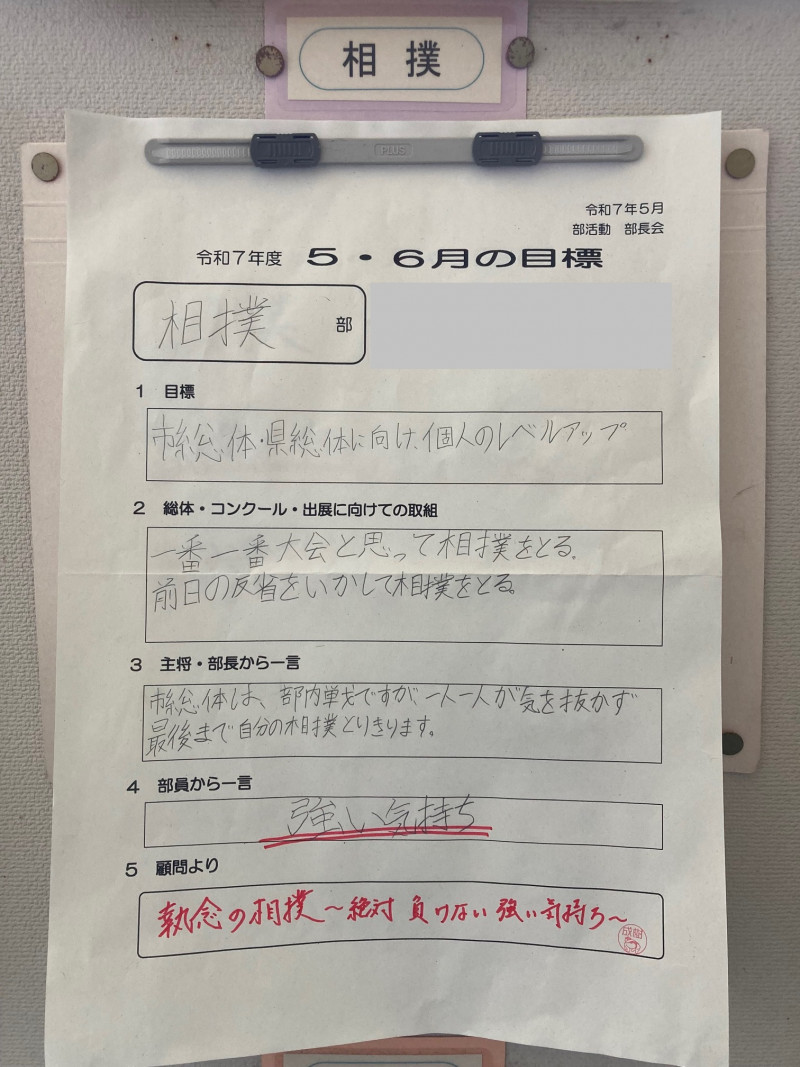 相撲
PLUS
令和7年5月
部活動 部長会
令和7年度 5・6月の目標
相撲 部
1 目標
市総体・県総体に向け、個人のレベルアップ
2 総体・コンクール・出展に向けての取組
一番一番大会と思って相撲をとる。
前日の反省をいかして相撲をとる。
3 主将・部長から一言
市総体は、部内単戈ですが、一人一人が気を抜かず
最後まで自分の相撲とりきります。
4 部員から一言
強い気持ち
5 顧問より
執念の相撲〜絶対 負けない 強い気持ち〜